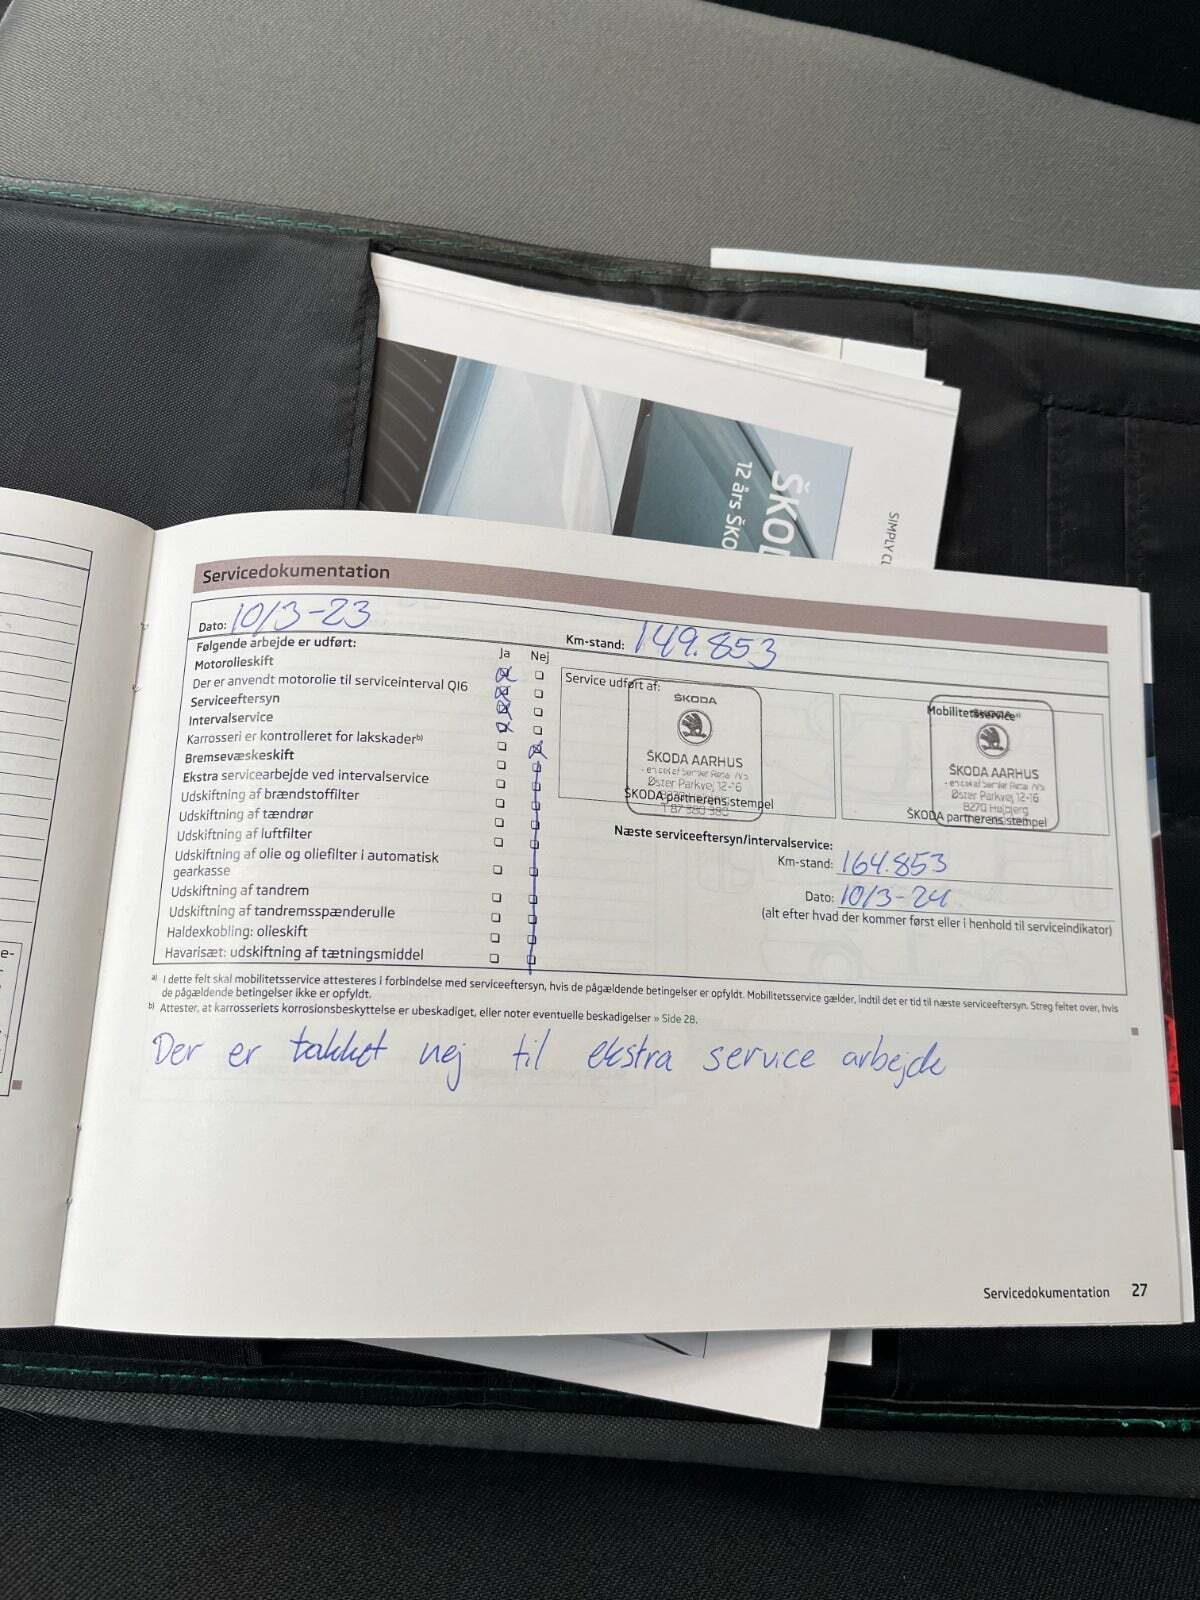 SIMPLY CL
ŠKO
12 års Ško
Servicedokumentation
Dato: 10/3-23
Km-stand: 149.853
Følgende arbejde er udført:
Ja Nej
Motorolieskift
Der er anvendt motorolie til serviceinterval QI6
Serviceeftersyn
Intervalservice
Karrosseri er kontrolleret for lakskader b)
Bremsevæskeskift
Ekstra servicearbejde ved intervalservice
Udskiftning af brændstoffilter
Udskiftning af tændrør
Udskiftning af luftfilter
Udskiftning af olie og oliefilter i automatisk
gearkasse
Udskiftning af tandrem
Udskiftning af tandremsspænderulle
Haldexkobling: olieskift
Havarisæt: udskiftning af tætningsmiddel
Service udført af:
ŠKODA
ŠKODA AARHUS
- en del af Semler Retail A/S
Øster Parkvej, 12-16
ŠKODA partnerens stempel
T 87 380 380
Mobilitetsservice a)
ŠKODA
ŠKODA AARHUS
- en del af Semler Retail A/S
Øster Parkvej, 12-16
8270 Højbjerg
ŠKODA partnerens stempel
Næste serviceeftersyn/intervalservice:
Km-stand: 164.853
Dato: 10/3-24
(alt efter hvad der kommer først eller i henhold til serviceindikator)
a) I dette felt skal mobilitetsservice attesteres i forbindelse med serviceeftersyn, hvis de pågældende betingelser er opfyldt. Mobilitetsservice gælder, indtil det er tid til næste serviceeftersyn. Streg feltet over, hvis
de pågældende betingelser ikke er opfyldt.
b) Attester, at karrosseriets korrosionsbeskyttelse er ubeskadiget, eller noter eventuelle beskadigelser » Side 28.
Der er takket nej til ekstra service arbejde
Servicedokumentation 27
e-